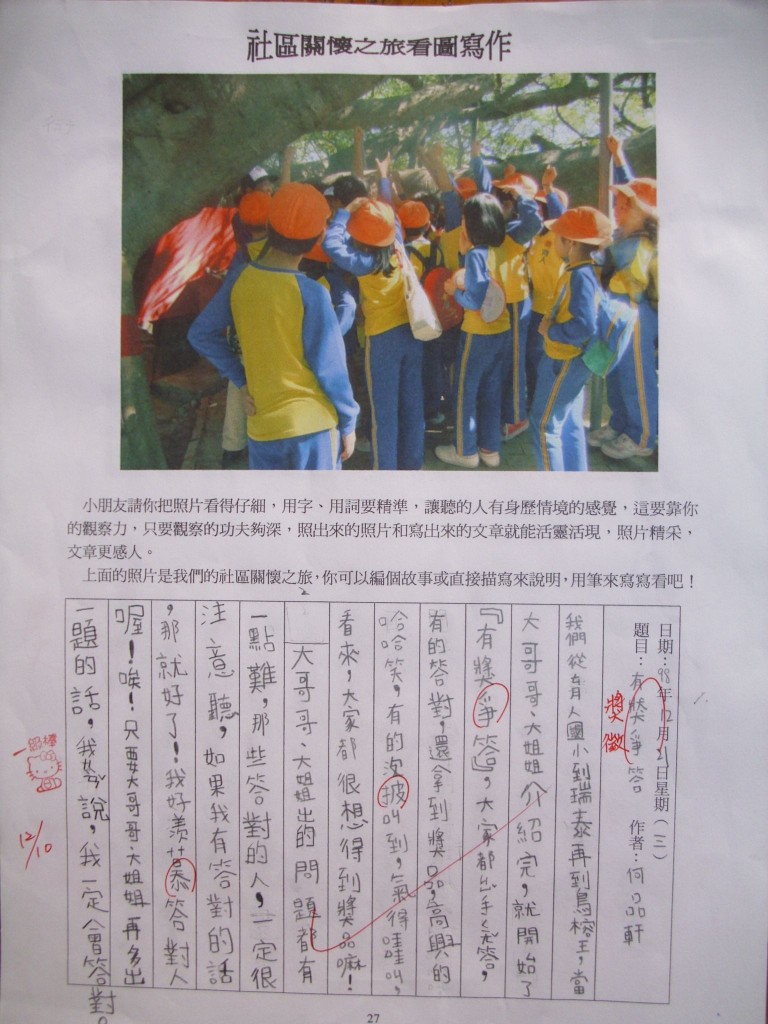 社區關懷之旅看圖寫作
小朋友請你把照片看得仔細，用字、用詞要精準，讓聽的人有身歷情境的感覺，這要靠你
的觀察力，只要觀察的功夫夠深，照出來的照片和寫出來的文章就能活靈活現，照片精采，
文章更感人。
上面的照片是我們的社區關懷之旅，你可以編個故事或直接描寫來說明，用筆來寫寫看吧！
日期：98年12月 日星期（三）
題目：有獎爭答 作者：何品軒
獎徵
我們從育人國小到瑞泰再到鳥榕王，當
大哥哥、大姐姐介紹完，就開始了
『有獎爭答』，大家都出手 答，
有的答對，還拿到獎品，高興的
哈哈笑，有的沒披叫到，氣得哇哇叫，
看來，大家都很想得到獎品嘛！
大哥哥、大姐姐出的問題都有
一點難，那些答對的人，一定很
注意聽，如果我有答對的話
，那就好了！我好羨慕答對人
喔！唉！只要大哥哥、大姐姐再多出
一題的話，我 說，我一定會答對。
一級棒
12/10
27